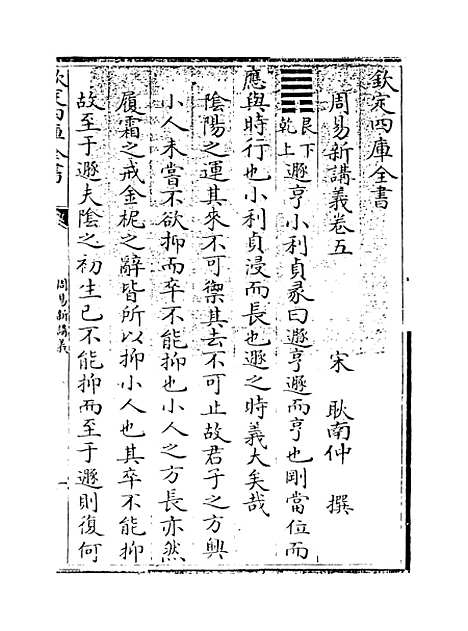 欽定四庫全書
周易新講義卷五
宋 耿南仲 撰
艮下
乾上
遯亨小利貞彖曰遯亨遯而亨也剛當位而
應與時行也小利貞浸而長也遯之時義大矣哉
陰陽之運其來不可禦其去不可止故君子之方興
小人未嘗不欲抑而卒不能抑也小人之方長亦然
履霜之戒金柅之辭皆所以抑小人也其卒不能抑
故至于遯夫陰之初生已不能抑而至于遯則復何
欽定四庫全書
周易新講義
一